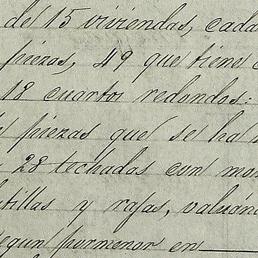 de 15 viviendas, cada
piezas, 49 que tiene
18 cuartos redondos:
piezas que se ha
28 techadas con
tillas y rajas, valuán
segun pormenor en